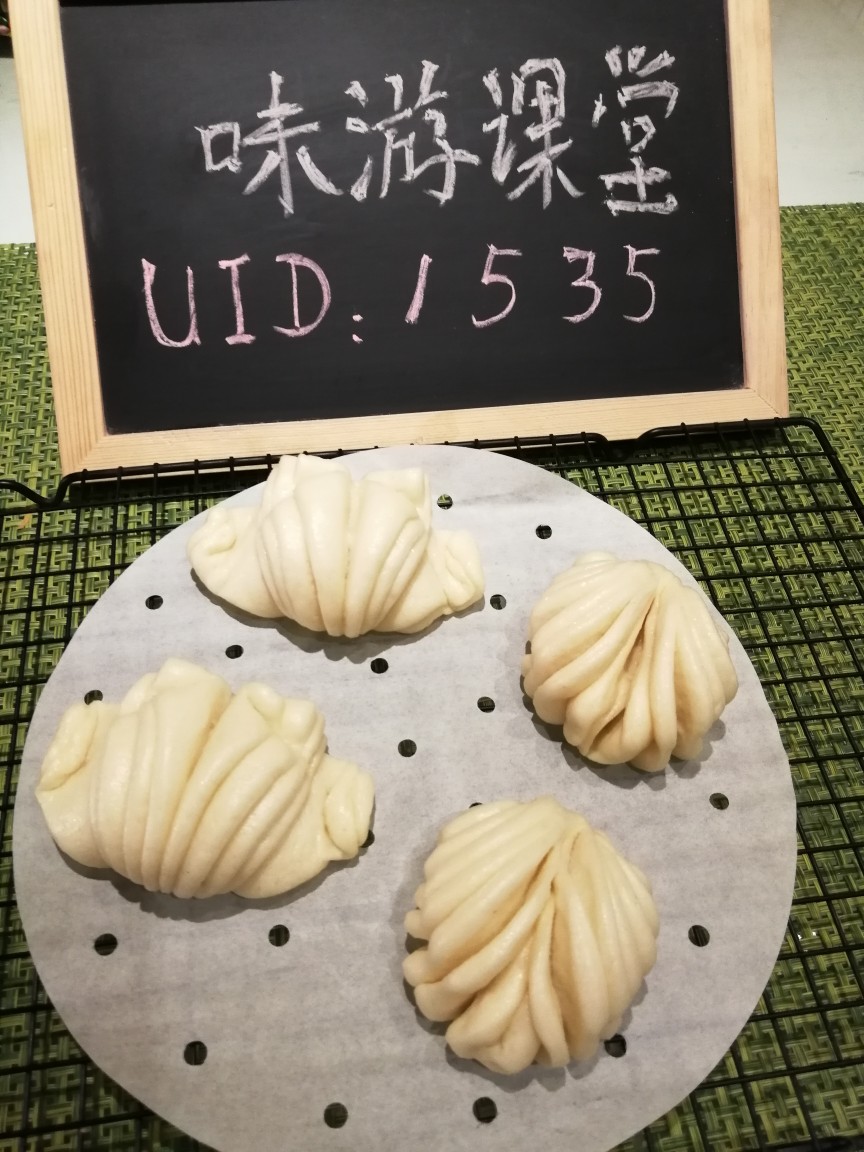 味游课堂
UID:1535